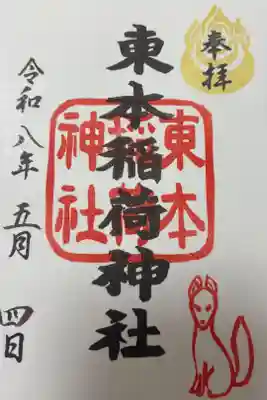 奉拝
東本稲荷神社
東本稲荷神社
令和八年 五月 四日